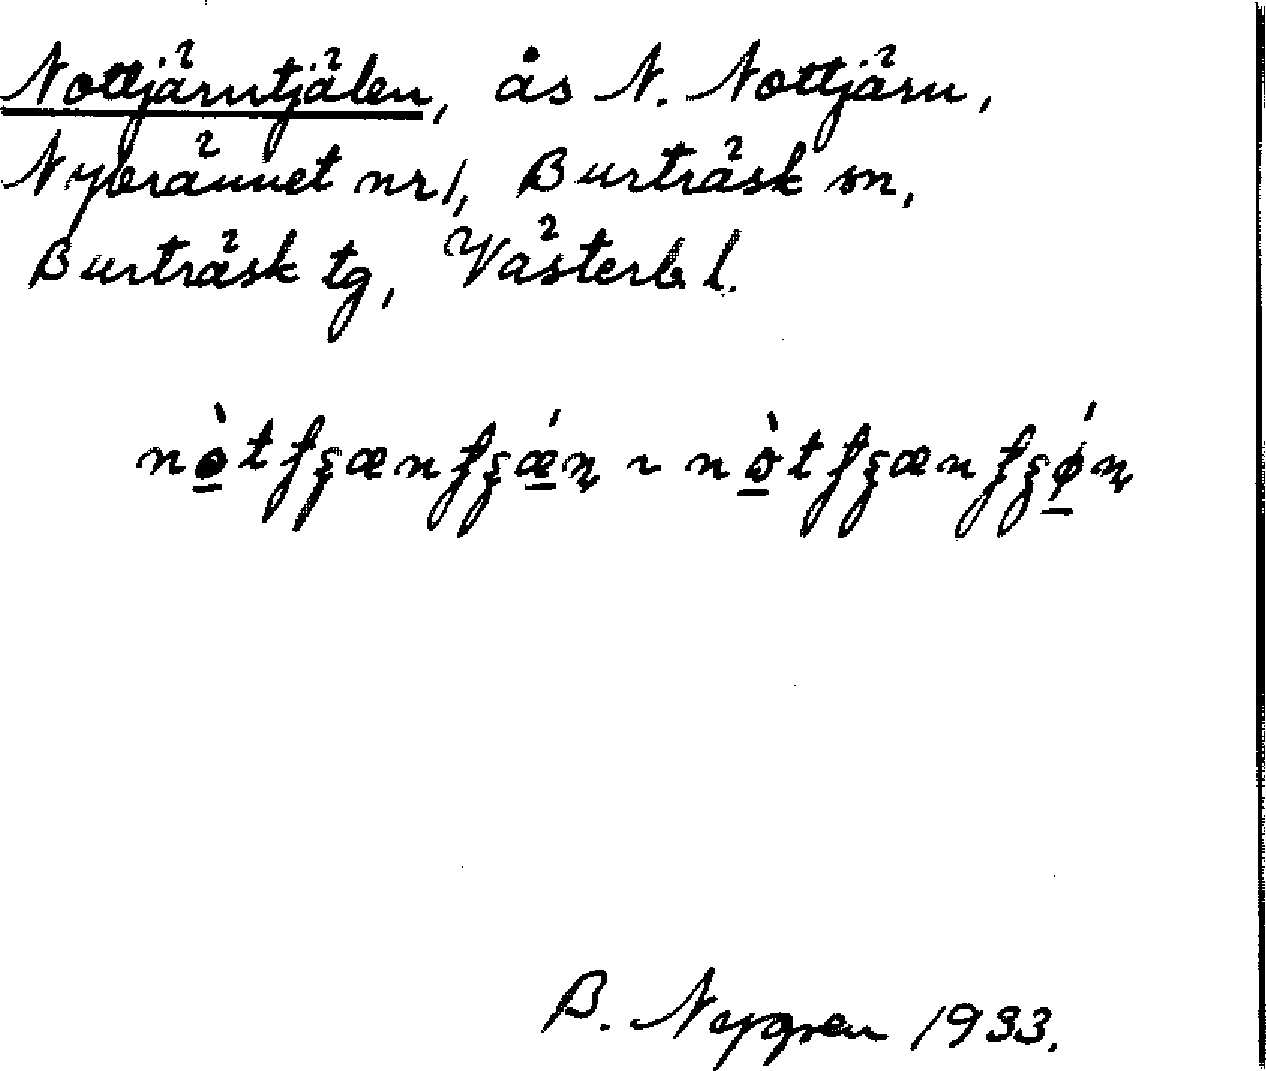 Nottjärntjälen, ås N. Nottjärn,
Nybrännet nr 1, Burträsk sn,
Burträsk tg, Västerb. l.
B. Nygren 1933.